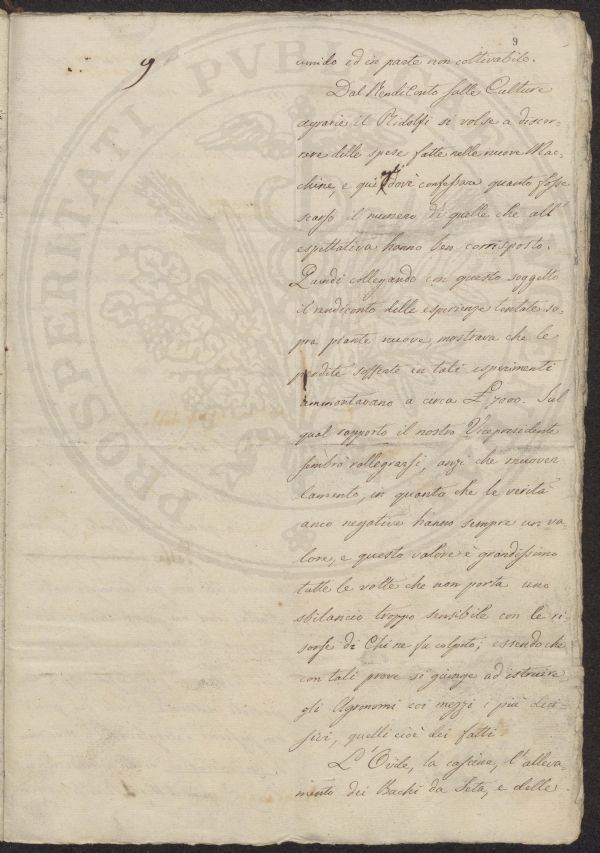 9
9
umido ed in parte non coltivabile.
Dal Rendiconto sulle Culture
agrarie il Ridolfi si volse a discor-
rere delle spese fatte nelle nuove Mac-
chine, e qui dovè confessare quanto fosse
scarso il numero di quelle che all'
espettativa hanno ben corrisposto.
Quindi collegando con questo soggetto
il rendiconto delle esperienze tentate so-
pra piante nuove, mostrava che le
perdite sofferte in tali esperimenti
ammontavano a circa £ 7000. Sul
qual rapporto il nostro Vicepresidente
sembrò rallegrarsi, anzi che muover
lamento, in quanto che le verità
anco negative hanno sempre un va-
lore, e questo valore è grandissimo
tutte le volte che non porta uno
sbilancio troppo sensibile con le ri
sorse di Chi ne fu colpito; essendo che
con tali prove si giunge ad istruire
gli Agronomi coi mezzi i più deci-
sivi, quelli cioè dei fatti
L'Ovile, la cascina, l'alleva-
mento dei Bachi da Seta, e delle
PROSPERITATI PUBLICAE